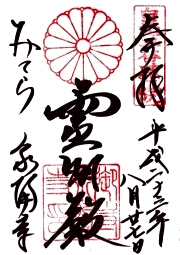 奉拝
平成二十三年
八月廿七日
靈明殿
みてら 泉涌寺